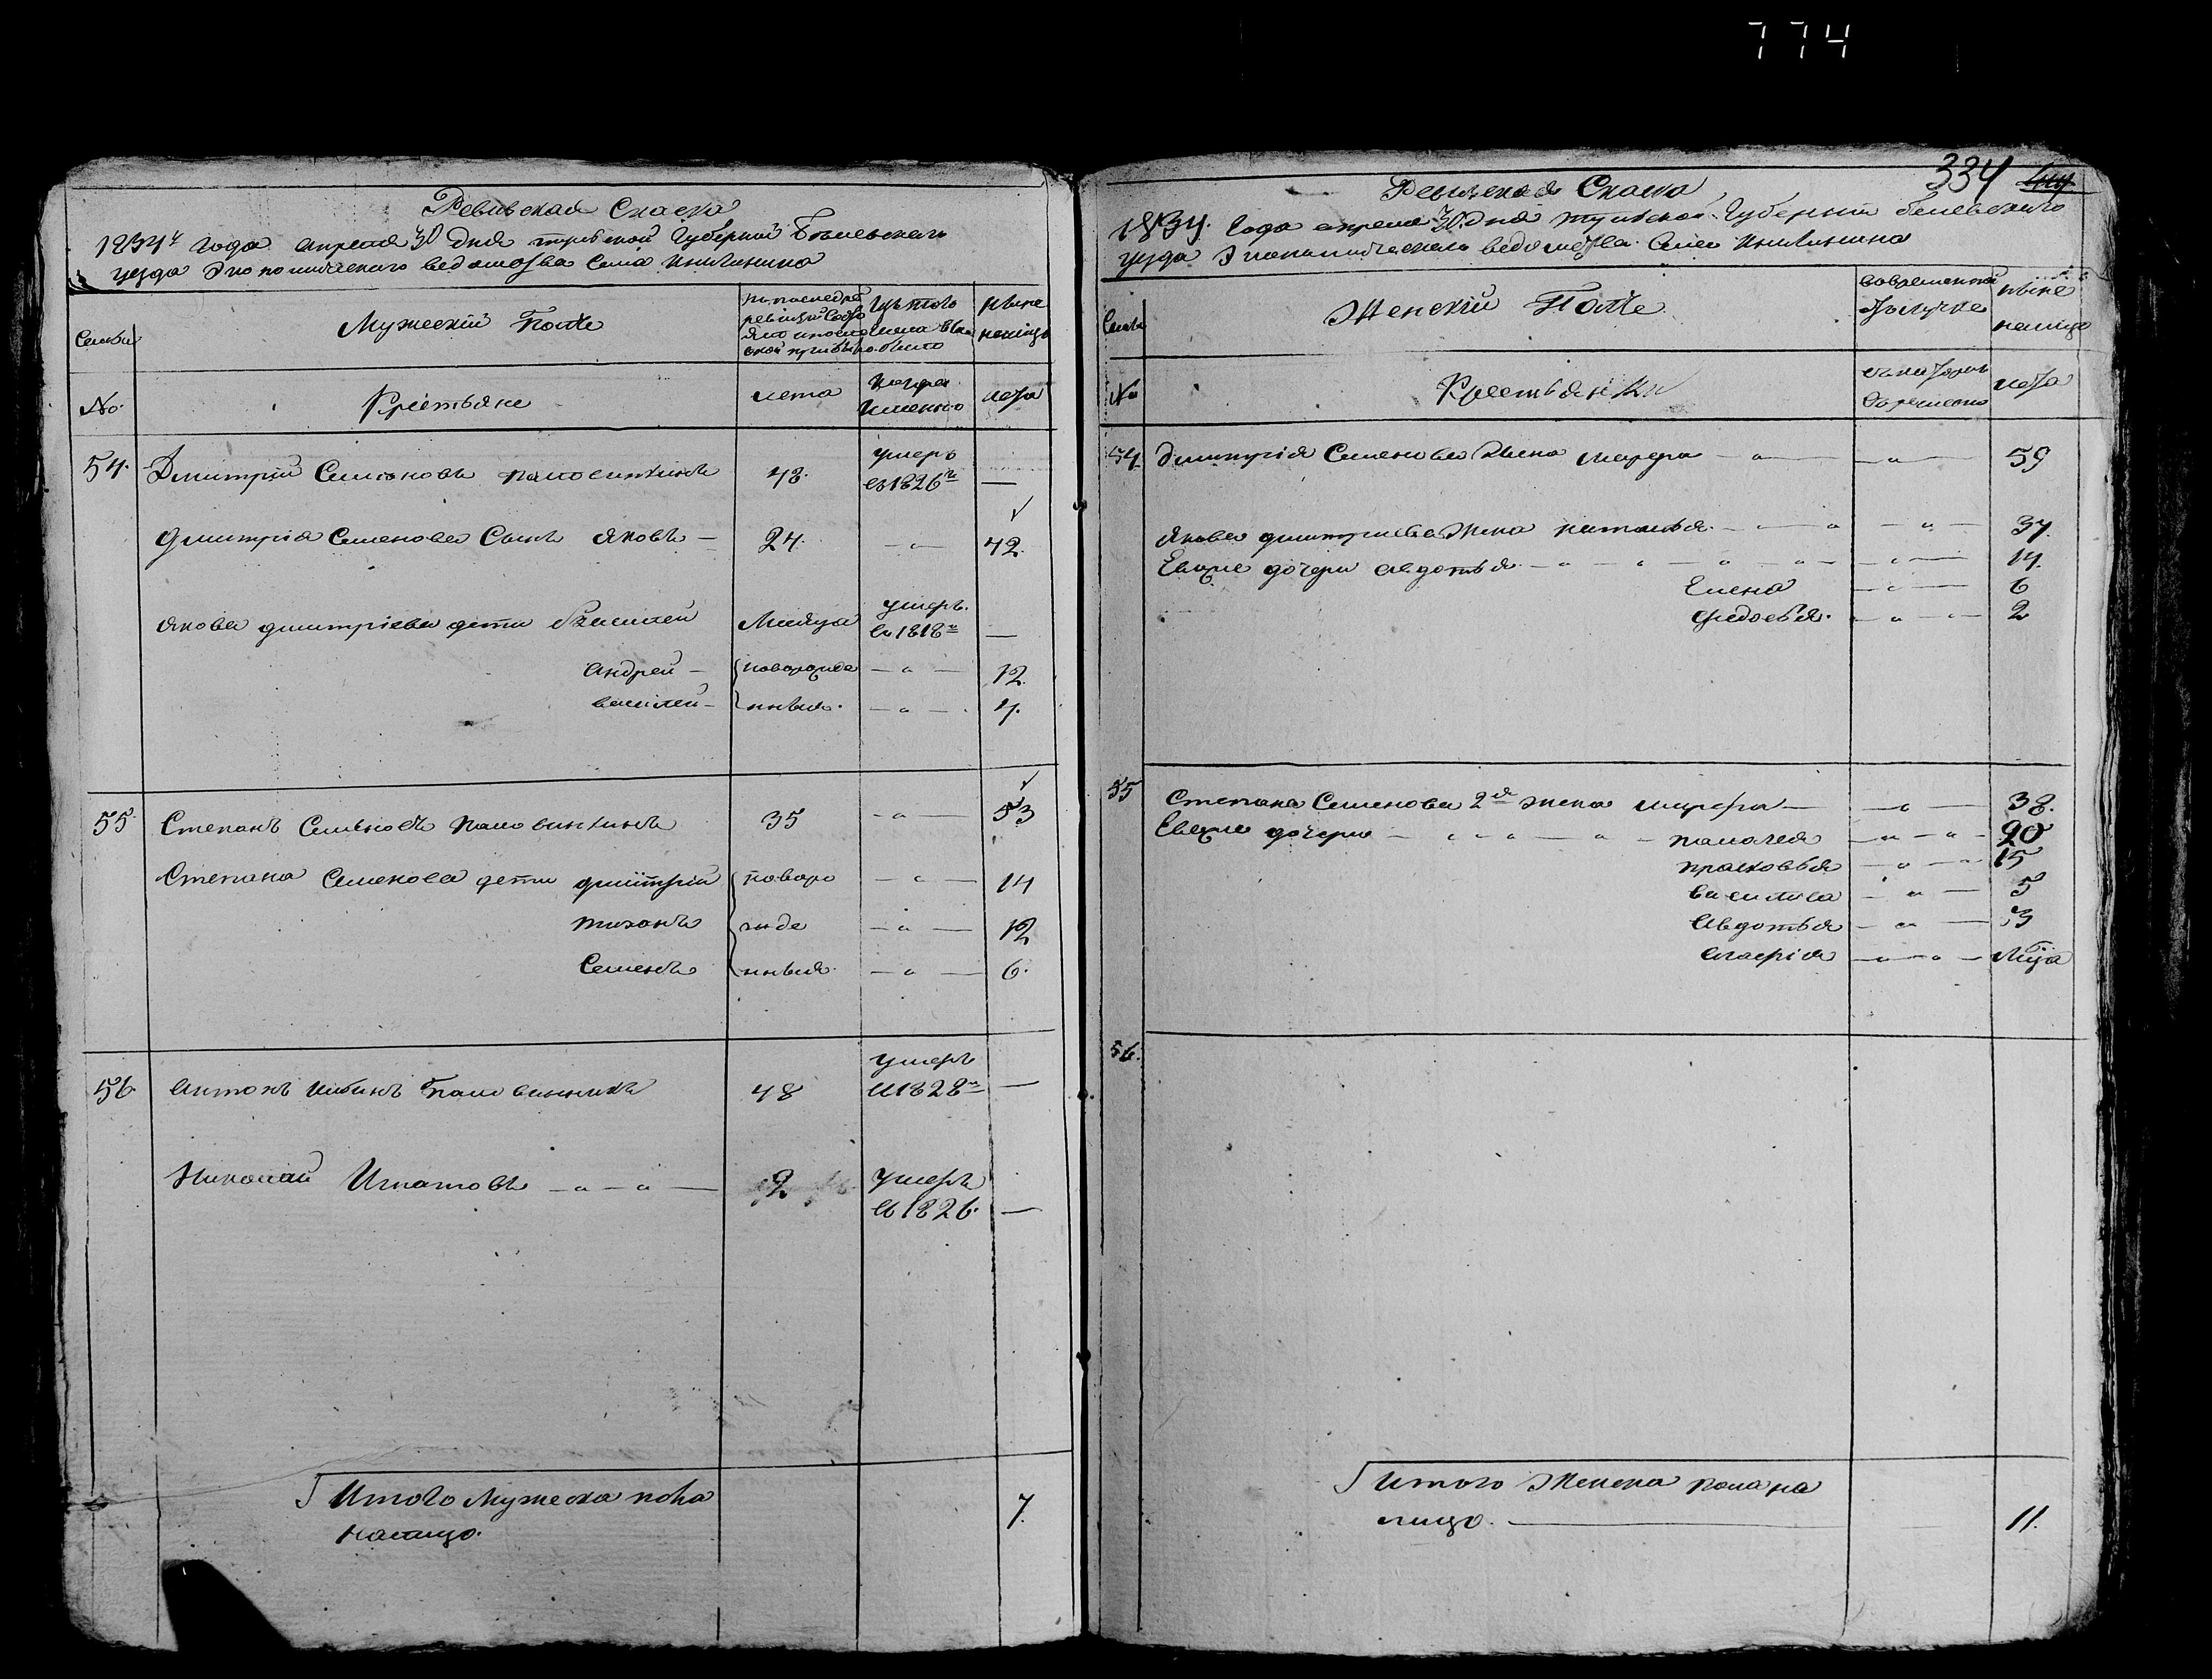 774
Ревизская Сказка
1834 года апреля 30 дня тульской Губернии Белевскаго
уезда Экономическаго ведомства Села
Семьи
Мужеский Полъ
по последней
ревизии состо
нныне
налицо
№
Крестьяне
лета
когда
именно
лета
54. Дмитрий Семеновъ 48. умеръ
въ 1826 —
Дмитрия Семенова Сынъ Яковъ — 24. — 42.
Якова дмитриева дети Василей Месяца умеръ
въ 1818 —
андрей — новорожде — 12.
василей — нныя. — 4.
55. Степанъ Семеновъ 35 — 53
Степана Семенова дети дмитрий новоро — 14
тихонъ жде — 12
Семенъ нныя. — 6.
56. антонъ 48 умеръ
въ 1828 —
Николай Игнатовъ — 2 умеръ
въ 1826. —
Итого Мужеска пола
налицо. 7.
334
Ревизская Сказка
1834. Года апреля 30. дня тульской Губернии белевскаго
уезда Экономическаго ведомства. Села
Семьи
Женский Полъ
во временной
отлучке
ныне
налицо
№
Крестьянки
съ котораго
времени
лета
54 Дмитрия Семенова жена марфа — 59
Якова дмитриева Жена наталья. — 37.
Ево же дочери авдотья — 14.
Елена — 6
федосья. — 2
55 Степана Семенова 2я жена марфа — 38.
Ево же дочери — пелагея — 20
прасковья — 15
василиса — 5
Авдотья — 3
— Мца
56.
Итого Женска пола на
лицо. — 11.